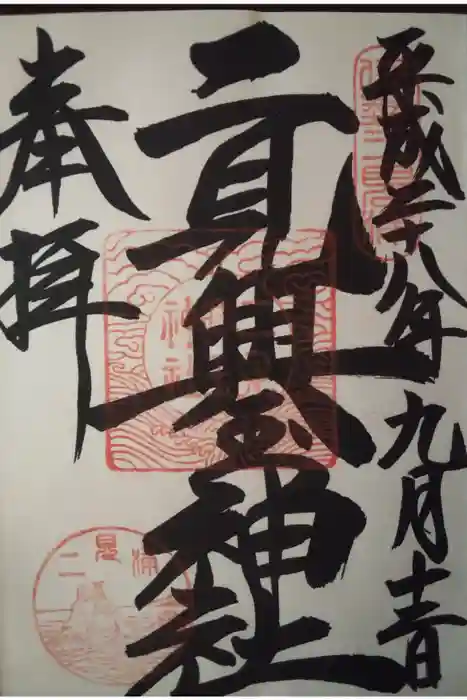 平成二十八年九月十一日
二見興玉神社
奉拝
二見浦